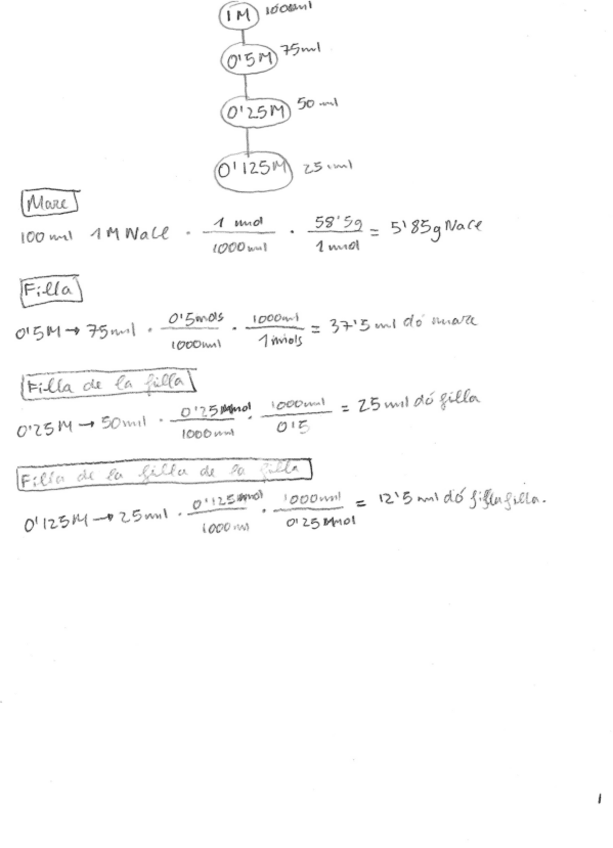 1M 100ml
0'5M 75ml
0'25M 50ml
0'125M 25ml
Mare
100ml 1M NaCl · 1 mol / 1000ml · 58'5g / 1 mol = 5'85g NaCl
Filla
0'5M → 75ml · 0'5mols / 1000ml · 1000ml / 1mols = 37'5ml dó mare
Filla de la filla
0'25M → 50ml · 0'25mol / 1000ml · 1000ml / 0'5 = 25ml dó filla
Filla de la filla de la filla
0'125M → 25ml · 0'125mol / 1000ml · 1000ml / 0'25mol = 12'5ml dó filla filla.